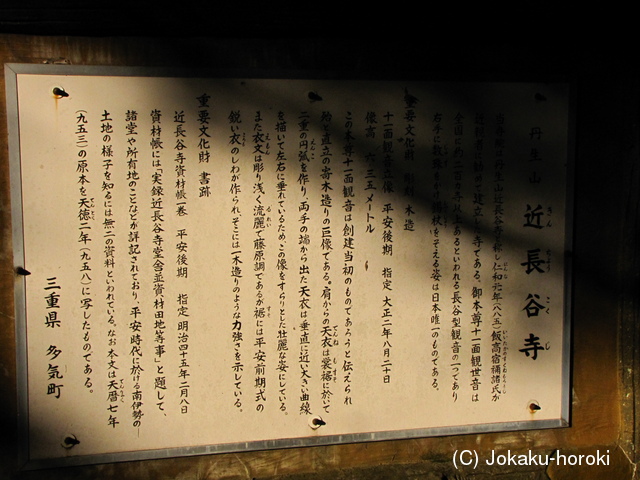 丹生山 近長谷寺
きん じょう こく じ
当寺院は丹生山近長谷寺と称し仁和元年(八八五)飯高宿禰諸氏が
建立した寺である。御本尊十一面観世音は
全国に
あるといわれる長谷型観音の一つであり
右手に数珠をかけ錫杖をそえる姿は日本唯一のものである。
重要文化財 彫刻 木造
十一面観音立像 平安後期 指定 大正二年八月二十日
像高 六・三五メートル
この本尊十一面観音は創建当初のものであろうと伝えられ
殆ど直立の寄木造りの巨像である。肩からの天衣は裳裾に於いて
二重の円弧を作り、両手の端から出た天衣は垂直に近い大きい曲線
を描いて左右に垂れているため、この像をすらりとした壮麗な姿にしている。
また衣文は彫り浅く流麗で藤原調であるが裾には平安前期式の
鋭い衣のしわが作られ、そこには一木造りのような力強さを示している。
重要文化財 書跡
近長谷寺資材帳一巻 平安後期 指定 明治四十五年二月八日
資材帳には「実録近長谷寺堂舎並資材田地等事」と題して、
諸堂や所有地のことなどが詳記されており、平安時代に於ける南伊勢の
土地の様子を知るには無二の資料といわれている。なお本文は天暦七年
(九五三)の原本を天徳二年(九五八)に写したものである。
三重県 多気町
(C) Jokaku-horoki